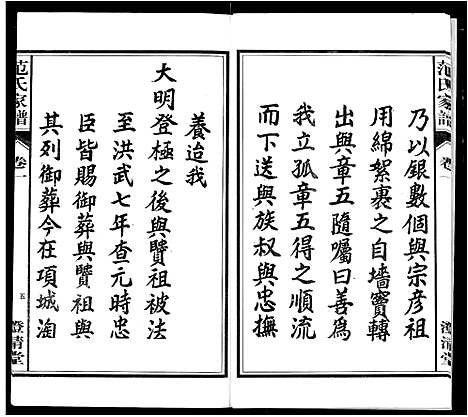 范氏家譜
卷一
澄清堂
乃以銀數個與宗彥祖
用綿絮裹之自墻竇轉
出與章五隨囑曰善為
我立孤章五得之順流
而下送與族叔與忠撫
養迨我
大明登極之後與贒祖被法
至洪武七年查元時忠
臣皆賜御葬與贒祖與
其列御葬今在項城淘
范氏家譜
卷一
五
澄清堂